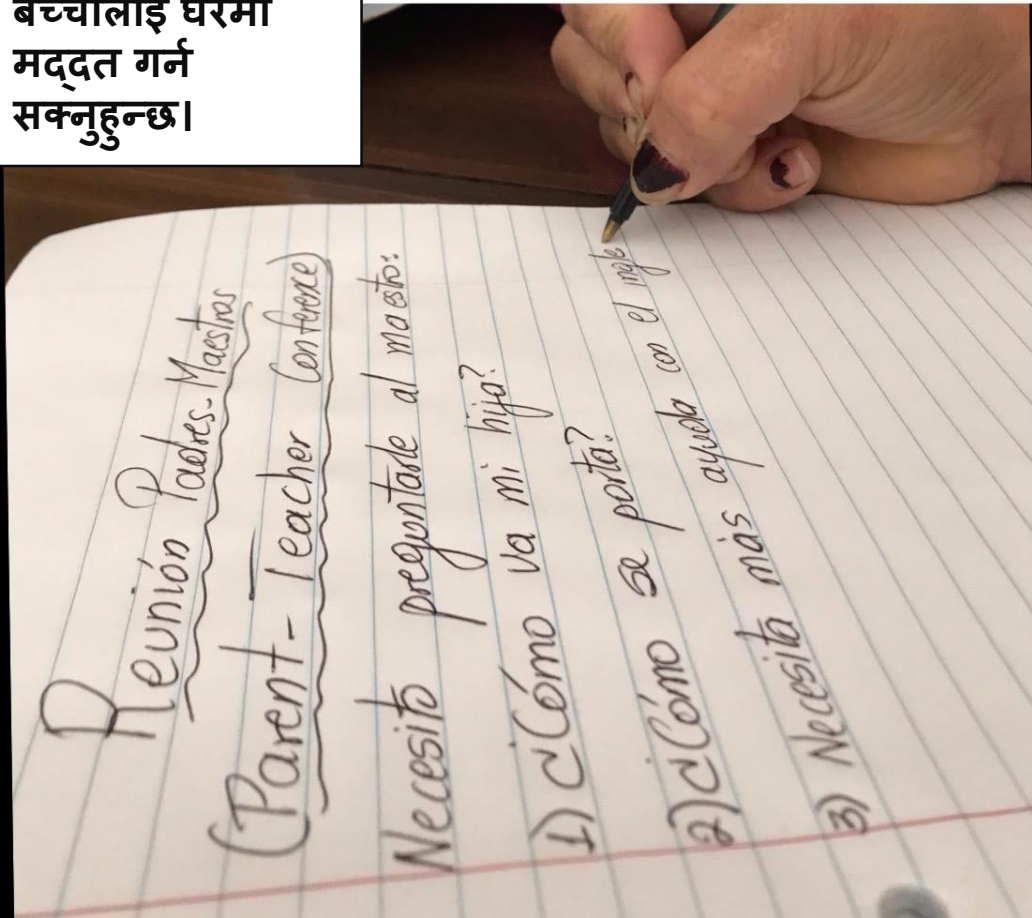 बच्चालाई घरमा
मद्दत गर्न
सक्नुहुन्छ।
Reunión Padres-Maestros
(Parent-Teacher Conference)
Necesito preguntarle al maestro:
1) ¿Cómo va mi hija?
2) ¿Cómo se porta?
3) Necesita más ayuda con el ingle